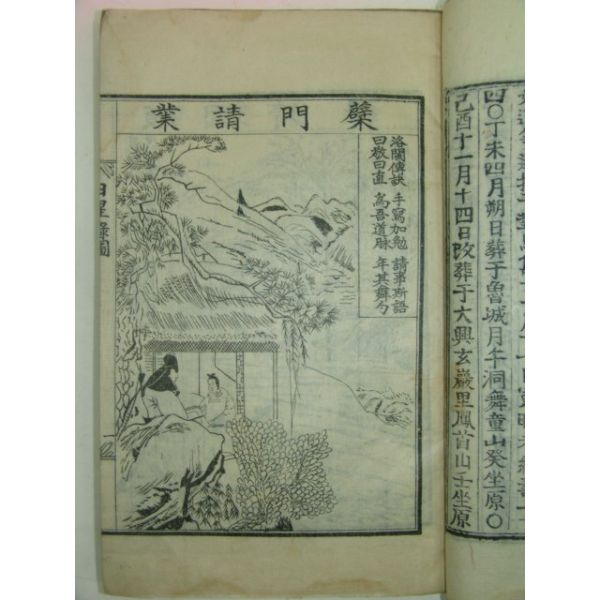 四〇丁未四月朔日葬于魯城月午洞舞童山癸坐原〇
己酉十一月十四日改葬于大興玄巖里鳳首山壬坐原
檗門請業
洛閩傳訣 手寫加勉 請事斯語
曰敬曰直 爲吾道脉 年其舞勺
日星錄圖